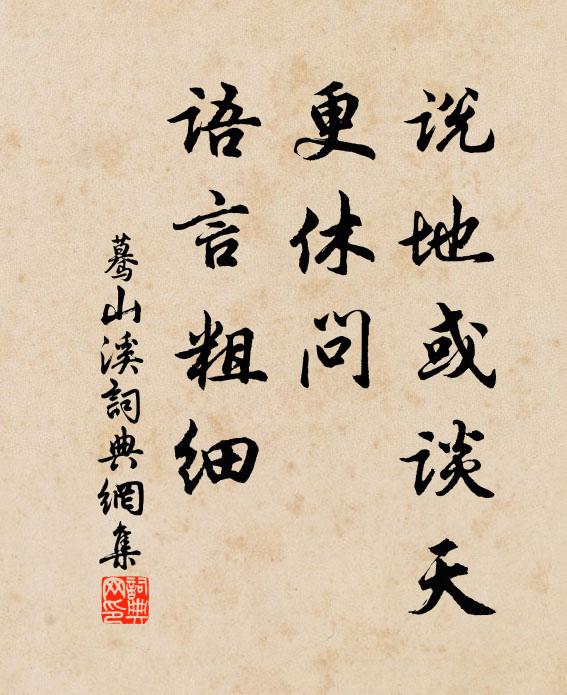 说地或谈天
更休问
语言粗细
蓦山溪詞典網集
詞典网印